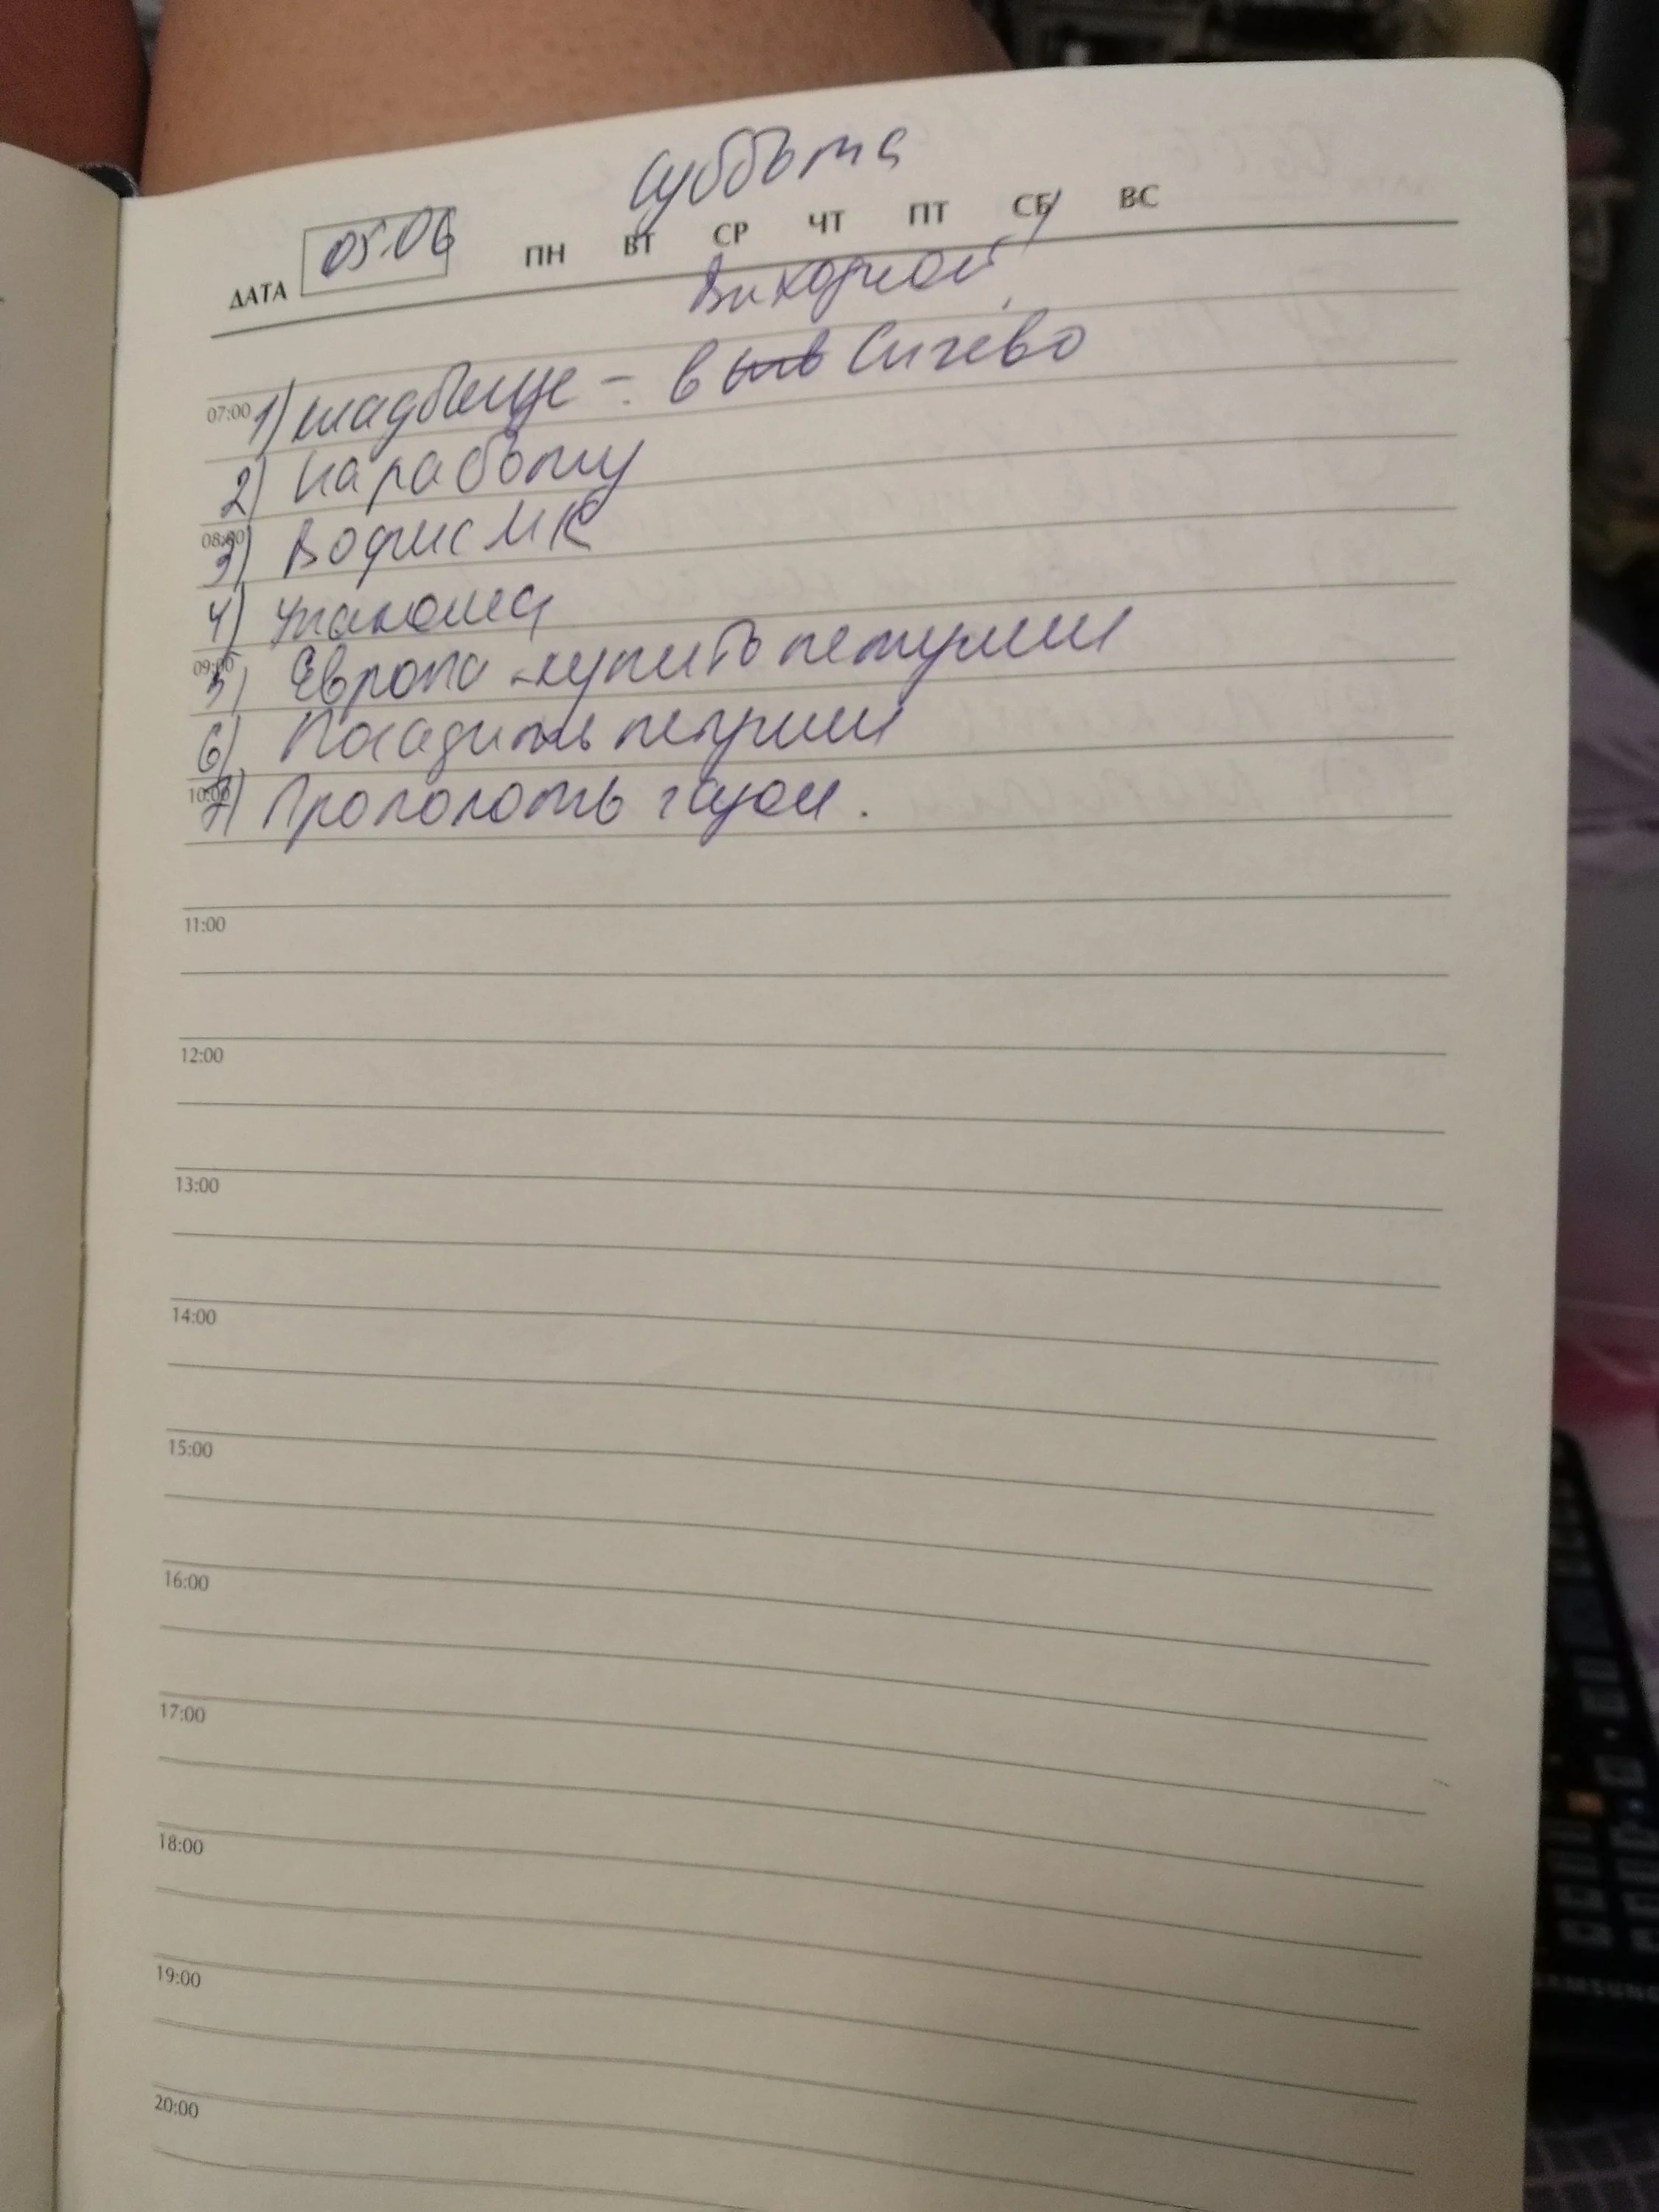 суббота
ДАТА 05.06 ПН ВТ СР ЧТ ПТ СБ ВС
Выходной
07:00 1) кладбище - в Сичёво
2) на работу
08:00 3) В офис МК
4)
09:00 5) Европа - купить петунии
6) Посадить петунии
10:00 7) Прополоть газон.
11:00
12:00
13:00
14:00
15:00
16:00
17:00
18:00
19:00
20:00
SAMSUNG